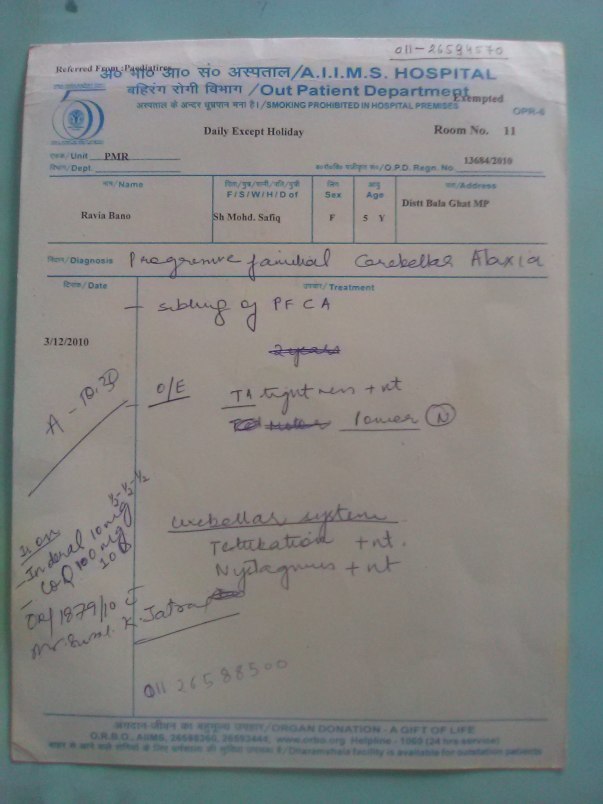 011-26594570
Referred From :Paediatires
अ० भा० आ० सं० अस्पताल/A.I.I.M.S. HOSPITAL
बहिरंग रोगी विभाग /Out Patient Department
Exempted
अस्पताल के अन्दर धूम्रपान मना है।/SMOKING PROHIBITED IN HOSPITAL PREMISES
OPR-6
Daily Except Holiday
Room No. 11
एकक/Unit PMR
विभाग/Dept.
O.P.D. Regn. No. 13684/2010
नाम/Name
पिता/पुत्र/पत्नी/पति/पुत्री
F/S/W/H/D of
लिंग
Sex
आयु
Age
पता/Address
Ravia Bano
Sh Mohd. Safiq
F
5 Y
Distt Bala Ghat MP
निदान/Diagnosis Progressive familial Cerebellar Ataxia
दिनांक/Date
उपचार/Treatment
- sibling of PFCA
3/12/2010
2 years
A - 10.30
- O/E
TA tightness + nt
lower N
Is on
- Inderal 10 mg ½-½-½
- CoQ 100 mg
10
cerebellar system
Titubation + nt.
Nystagmus + nt
1879/10
K. Jatra
011 26588500
अंगदान-जीवन का बहुमूल्य उपहार/ORGAN DONATION - A GIFT OF LIFE
O.R.B.O., AIIMS, 26588360, 26593444, www.orbo.org Helpline - 1060 (24 hrs service)
Dharamshala facility is available for outstation patients